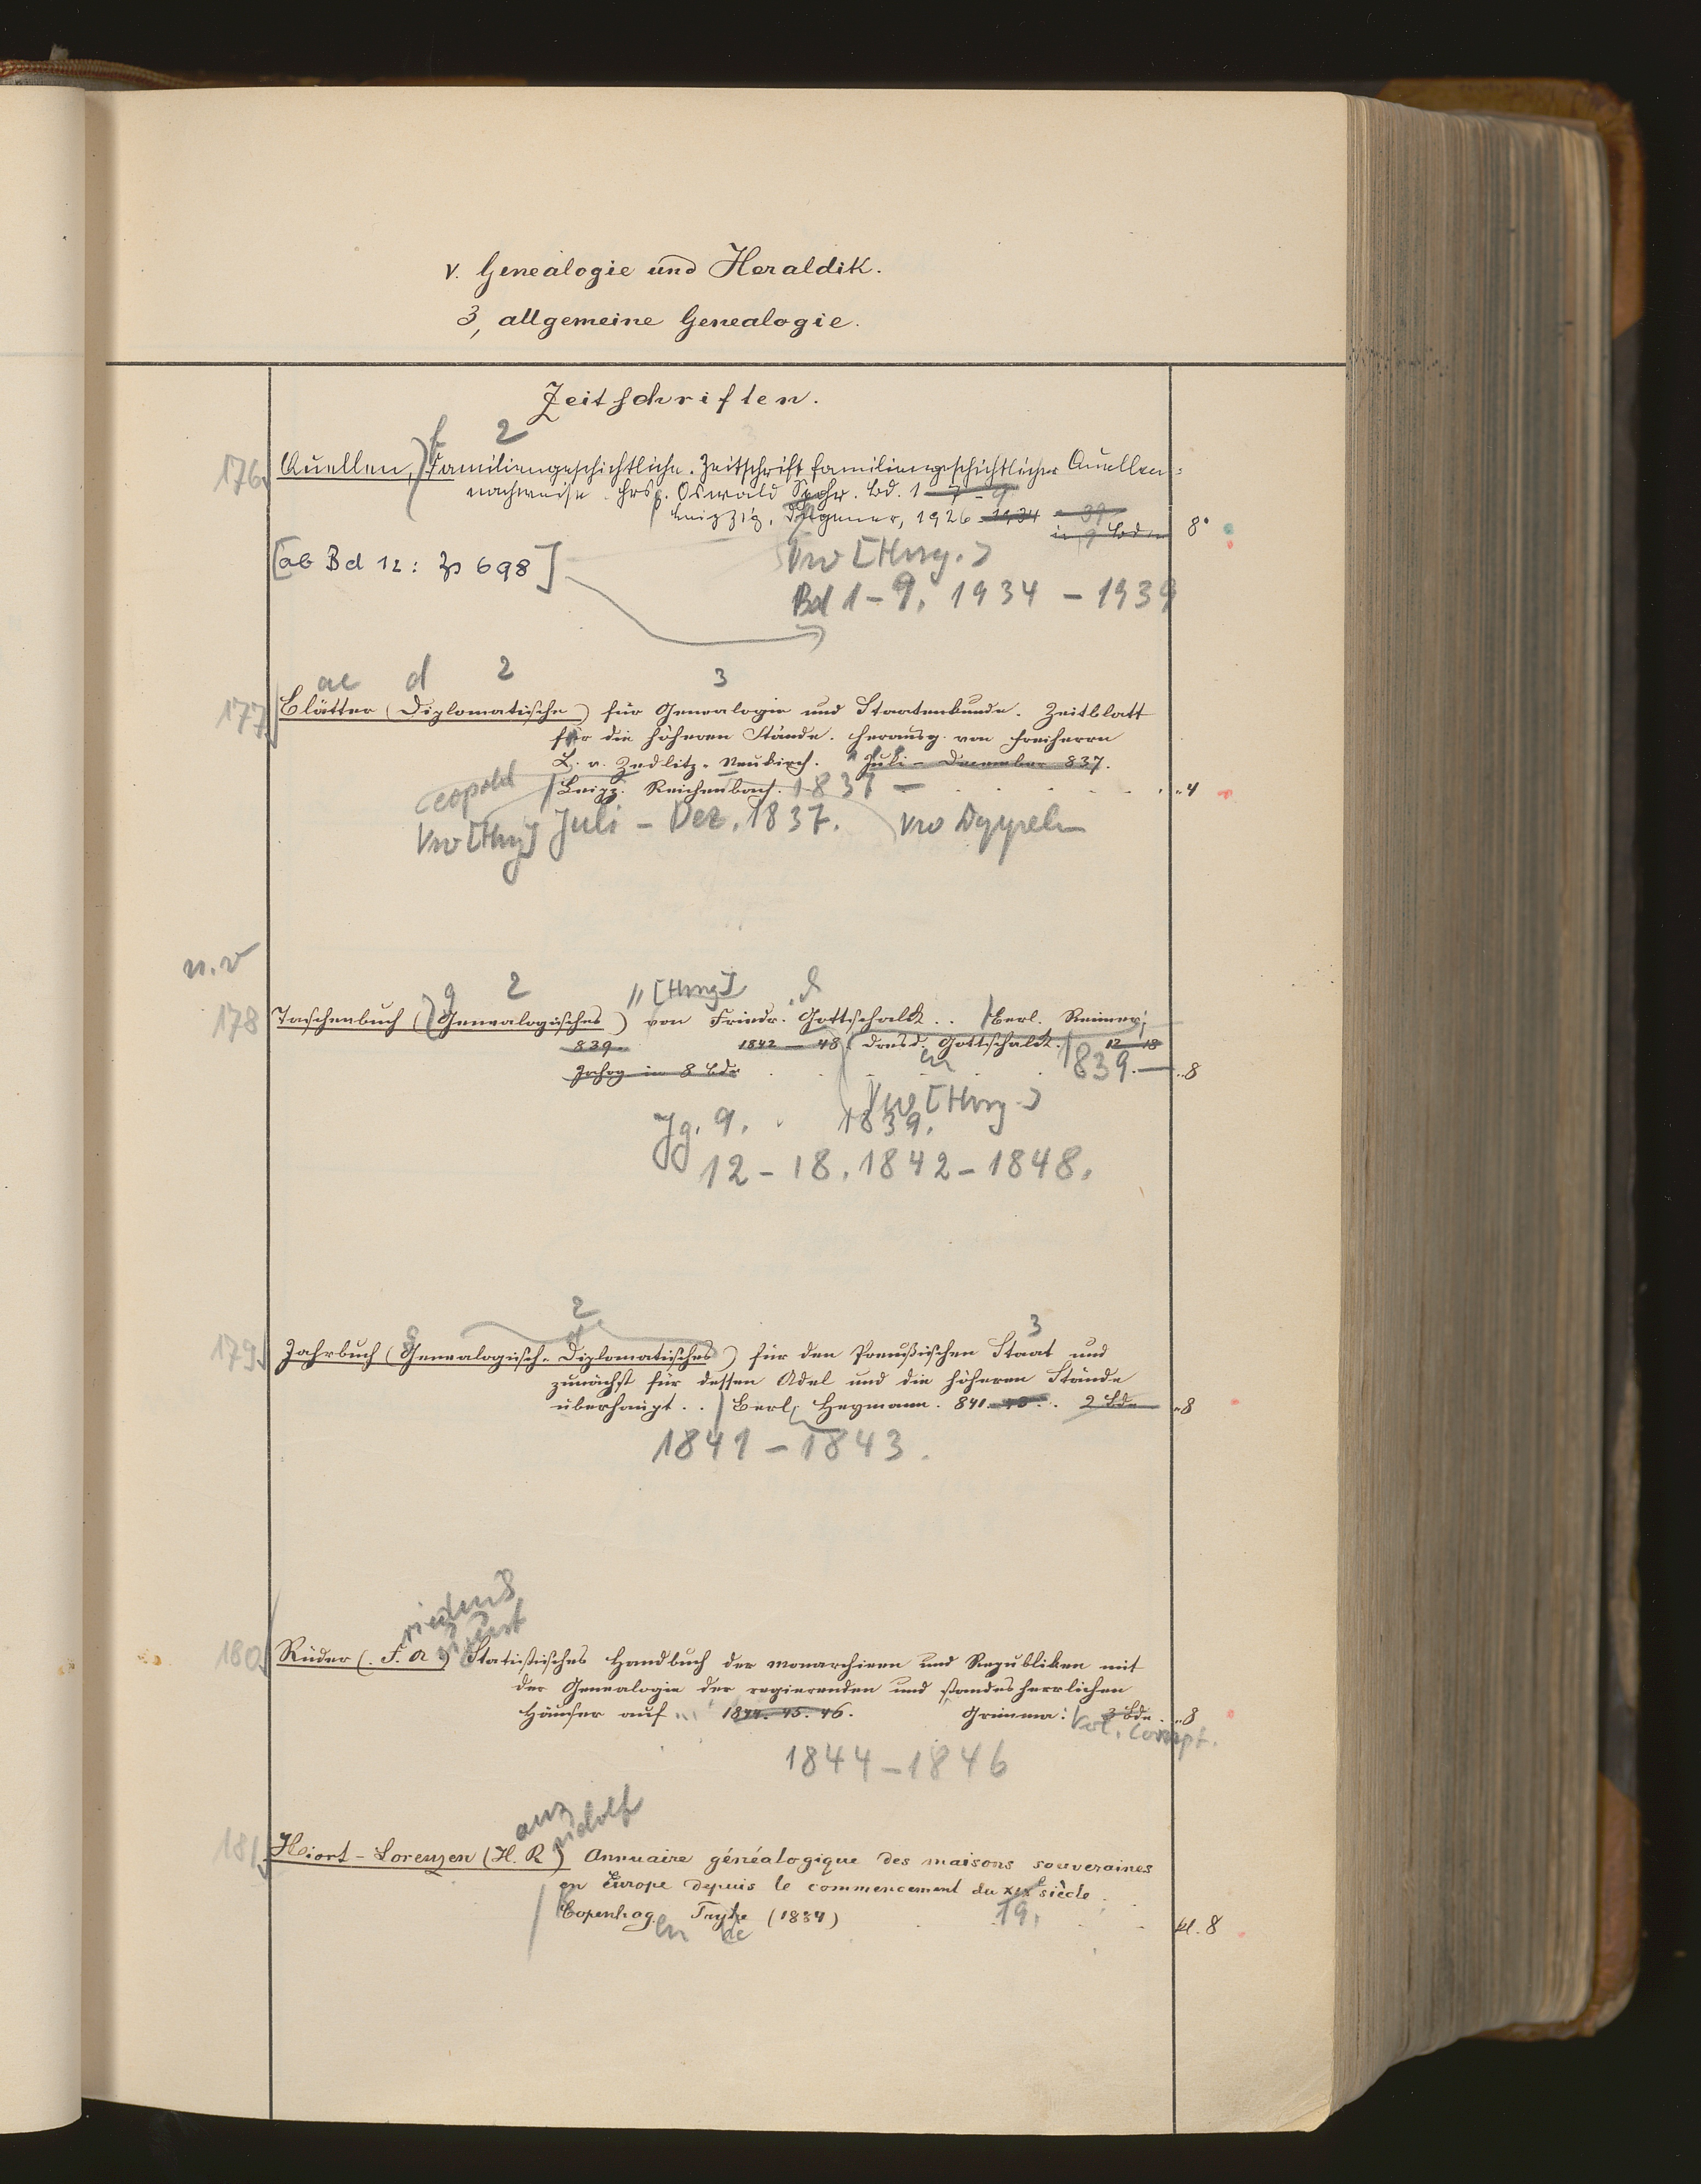 V. Genealogie und Heraldik.
3, allgemeine Genealogie.
Zeitschriften.
f 2
176. Quellen, Familiengeschichtliche. Zeitschrift familiengeschichtlicher Quellen-
nachweise. Hrsg. Oswald Spohr. Bd. 1-7-9
Leipzig, Degener, 1926-1934 - 39
in 9 Bdn 8°
[ab Bd 12: Zs 698] Vw [Hrsg.]
Bd 1-9. 1934 - 1939
ae d 2 3
177 Blätter (Diplomatische) für Genealogie und Staatenkunde. Zeitblatt
für die höheren Stände. Herausg. von Freiherrn
L. v. Zedlitz-Neukirch. Juli - December 837.
eopold Leipz. Reichenbach. 1837 - 4
Vw [Hrg] Juli - Dez. 1837. Vw Doppeln
n.v
g 2 [Hrsg]
178 Taschenbuch (Genealogisches) von Friedr. Gottschalck.. Berl. Reimer;
839 1842 - 48. Dresd. Gottschalck. 12-18
Jahrg in 8 Bdn en 1839.- 8
Vw [Hrsg.]
Jg. 9. 1839.
12-18. 1842-1848.
2 3
179. Jahrbuch (Genealogisch-Diplomatisches) für den Preußischen Staat und
zunächst für dessen Adel und die höheren Stände
überhaupt.. Berl, Heymann. 841-43. 2 Bde 8
1841-1843.
180. Rüder (F. A) Statistisches Handbuch der Monarchieen und Republiken mit
der Genealogie der regierenden und standesherrlichen
Häuser auf ... 1844. 45. 46. Grimma: 3 Bde. 8
Vol. Compt.
1844-1846
ans udolf
181. Hiort-Lorenzen (H. R) Annuaire généalogique des maisons souveraines
en Europe depuis le commencement du XIXe siècle.
Copenhag. Tryde (1884) 19.
en de kl. 8